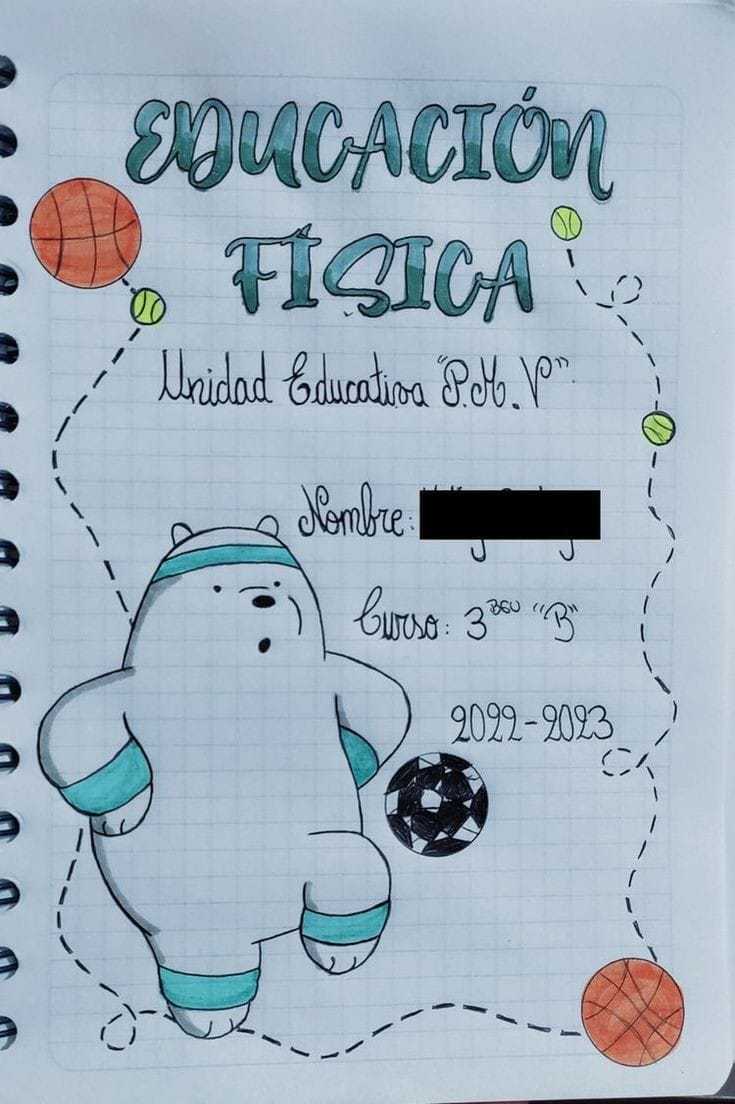 EDUCACIÓN
FÍSICA
Unidad Educativa "P.M.V"
Nombre:
Curso: 3 BGU "B"
2022-2023